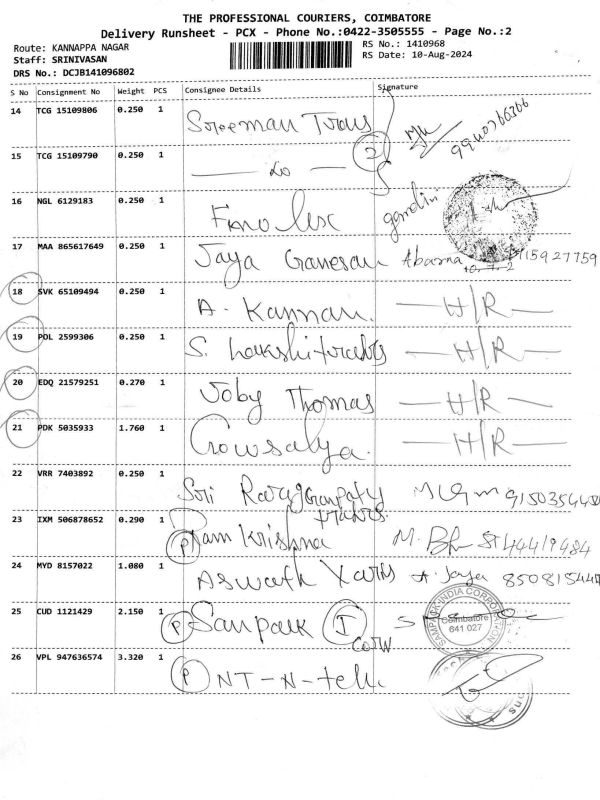 THE PROFESSIONAL COURIERS, COIMBATORE
Delivery Runsheet - PCX - Phone No.:0422-3505555 - Page No.:2
Route: KANNAPPA NAGAR
RS No.: 1410968
Staff: SRINIVASAN
RS Date: 10-Aug-2024
DRS No.: DCJB141096802
S No Consignment No Weight PCS Consignee Details Signature
14 TCG 15109806 0.250 1 Sreeman Trans
15 TCG 15109790 0.250 1 — do — 2
16 NGL 6129183 0.250 1
17 MAA 865617649 0.250 1 Jaya Ganesan Abarna
18 SVK 65109494 0.250 1 A. Kannan. — H/R —
19 POL 2599306 0.250 1 S. — H/R —
20 EDQ 21579251 0.270 1 Joby Thomas — H/R —
21 PDK 5035933 1.760 1 Gowsalya. — H/R —
22 VRR 7403892 0.250 1 Sri
23 IXM 506878652 0.290 1 P Ram Krishna
24 MYD 8157022 1.080 1 Aswath A. Jaya
25 CUD 1121429 2.150 1 P Sanpark I
SAMPARK INDIA CORPORATION
Coimbatore
641 027
26 VPL 947636574 3.320 1 P NT-N-tek.